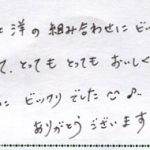 と洋の組み合わせにビッ
て、とってもとってもおいしく
にビックリでした♪
ありがとうございます